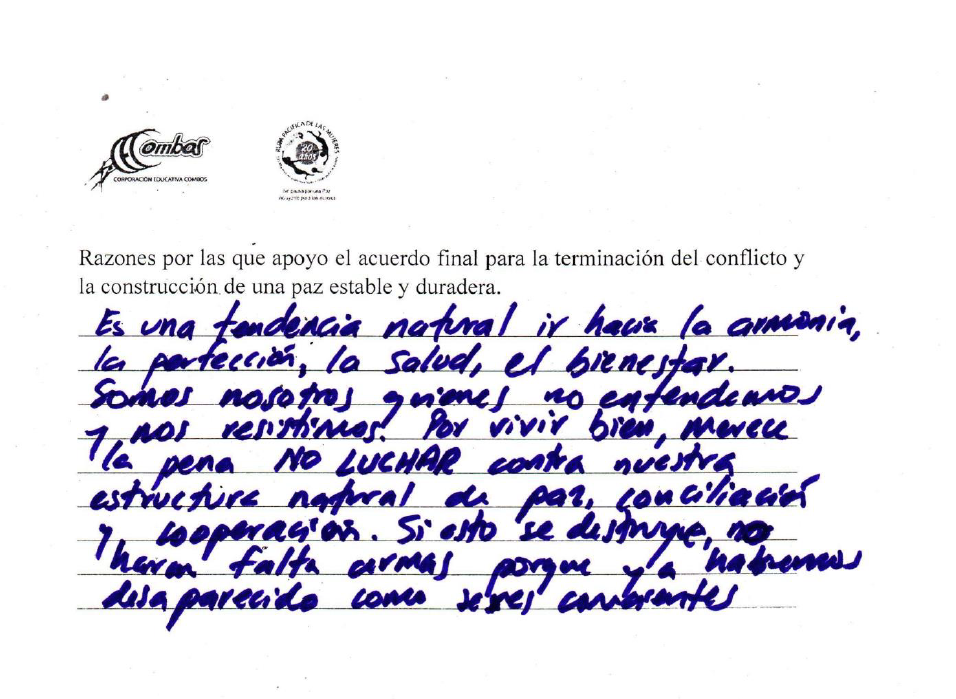 Combos
CORPORACIÓN EDUCATIVA COMBOS
RUTA PACÍFICA DE LAS MUJERES
20 años
Razones por las que apoyo el acuerdo final para la terminación del conflicto y
la construcción de una paz estable y duradera.
Es una tendencia natural ir hacia la armonia,
la perfección, la salud, el bienestar.
Somos nosotros quienes no entendemos
y nos resistimos. Por vivir bien, merece
la pena NO LUCHAR contra nuestra
estructura natural de paz, conciliación
y cooperación. Si esto se destruye, no
haran falta armas porque ya habremos
desaparecido como seres conscientes